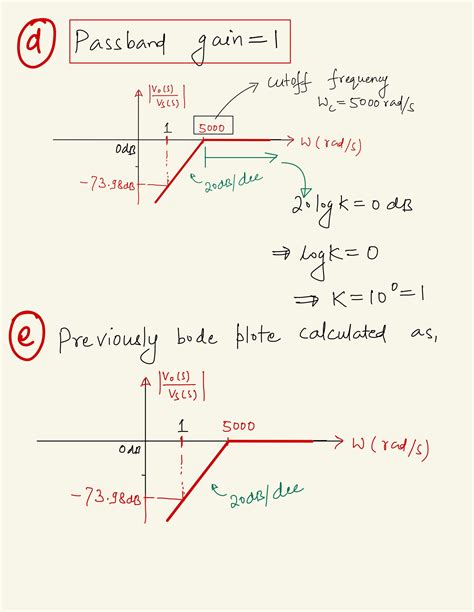 d Passband gain=1
cutoff frequency
Wc=5000 rad/s
|Vo(s)/Vs(s)|
1 5000
0dB
W(rad/s)
-73.98dB
20dB/dec
20logK=0 dB
⇒ logK=0
⇒ K=10⁰=1
e Previously bode plote calculated as,
|Vo(s)/Vs(s)|
1 5000
0dB
W(rad/s)
-73.98dB
20dB/dec